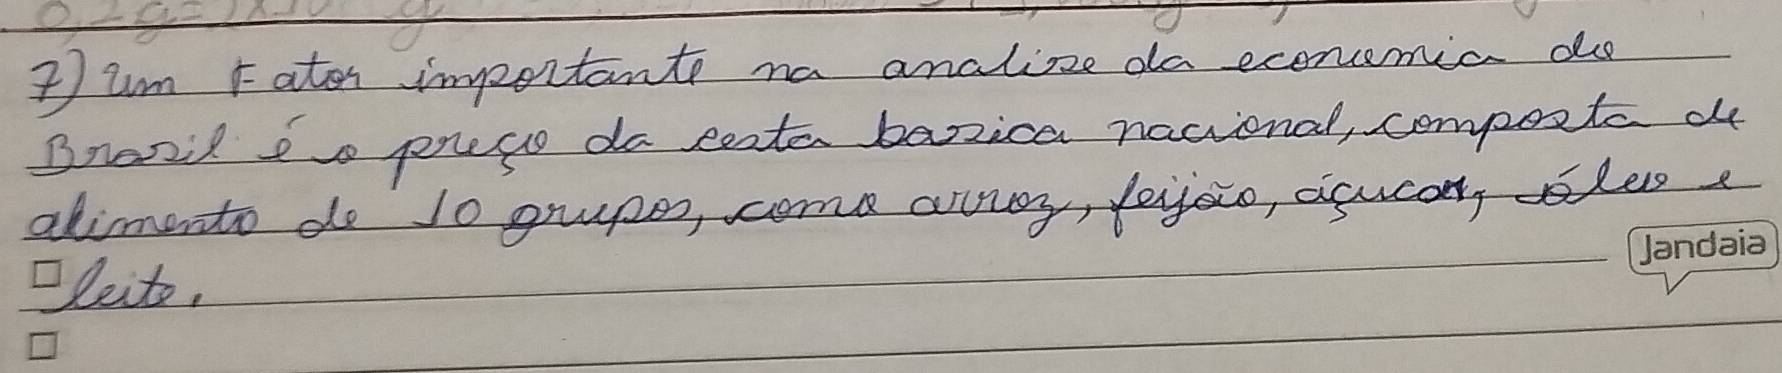 7) um Fator importante na analize da economia do
Brasil é o preço da cesta bazica nacional, composta de
alimento de 10 grupos, como arroz, feijão, açucar, óleo e
leite.
Jandaia